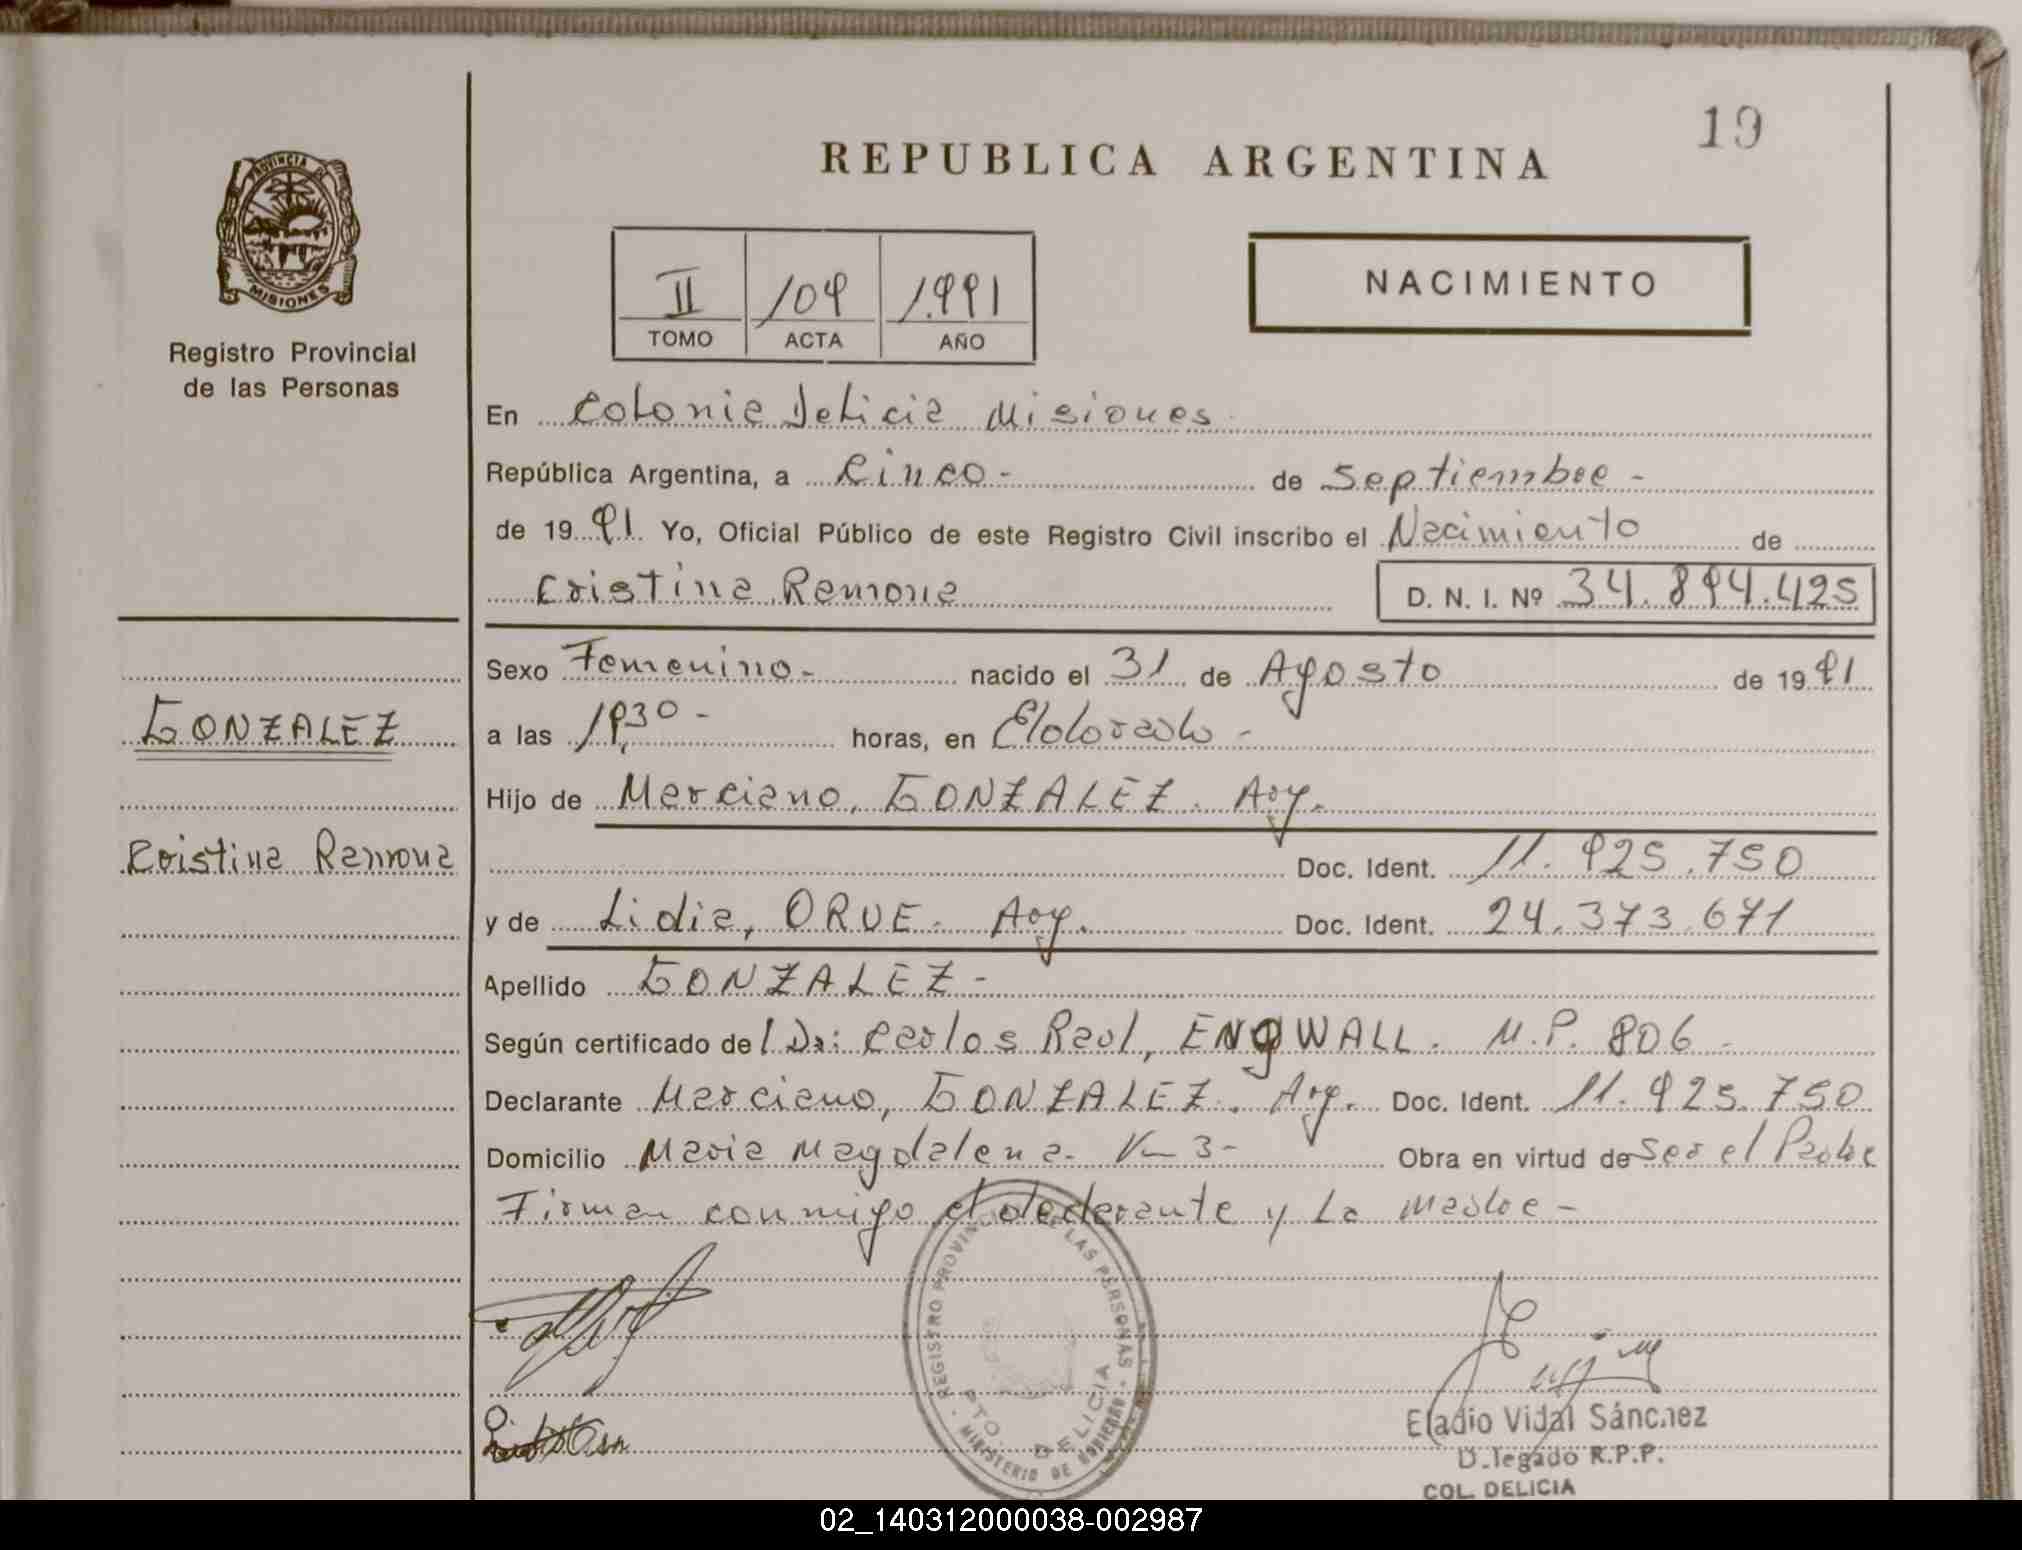 19
REPUBLICA ARGENTINA
PROVINCIA DE
MISIONES
Registro Provincial
de las Personas
II 109 1.991
TOMO ACTA AÑO
NACIMIENTO
En Colonia Delicia Misiones
República Argentina, a Cinco - de Septiembre -
de 19 91. Yo, Oficial Público de este Registro Civil inscribo el Nacimiento de
Cristina Ramona D. N. I. Nº 34.894.425
Sexo Femenino - nacido el 31 de Agosto de 19 91
GONZALEZ
a las 19,30 - horas, en Eldorado -
Hijo de Marciano, GONZALEZ. Arg.
Cristina Ramona
Doc. Ident. 11.925.750
y de Lidia, ORUE. Arg. Doc. Ident. 24.373.671
Apellido GONZALEZ -
Según certificado del Dr: Carlos Raul, ENGWALL. M.P. 806 -
Declarante Marciano, GONZALEZ. Arg. Doc. Ident. 11.925.750
Domicilio Maria Magdalena - Km 3 - Obra en virtud de ser el Padre
Firman conmigo el declarante y La madre -
REGISTRO PROVINCIAL DE LAS PERSONAS
PTO. DELICIA
MINISTERIO DE GOBIERNO
Eladio Vidal Sánchez
Delegado R.P.P.
COL. DELICIA
02_140312000038-002987